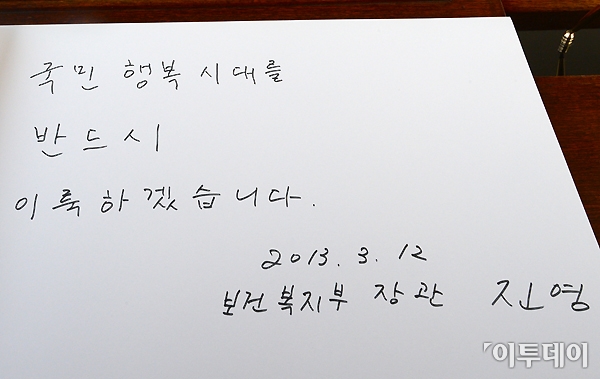 국민 행복 시대를
반드시
이룩하겠습니다.
2013. 3. 12
보건복지부 장관 진영
이투데이